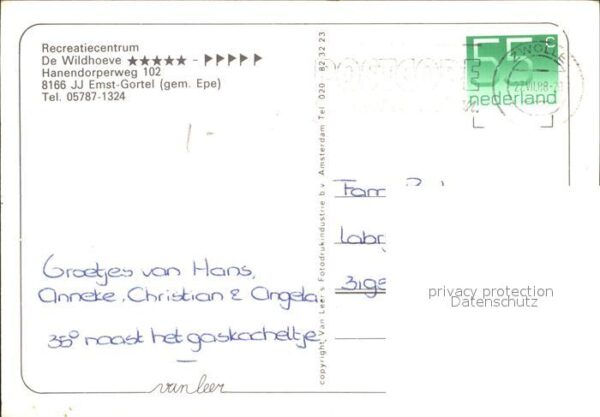 Recreatiecentrum
De Wildhoeve ★★★★★ -
Hanendorperweg 102
8166 JJ Emst-Gortel (gem. Epe)
Tel. 05787-1324
1-
55 c
nederland
ZWOLLE
copyright Van Leer's Fotodrukindustrie b.v. Amsterdam Tel. 020 - 82 32 23
Fam.
Groetjes van Hans,
Anneke, Christian & Angela.
35° naast het gaskacheltje
van leer
privacy protection
Datenschutz